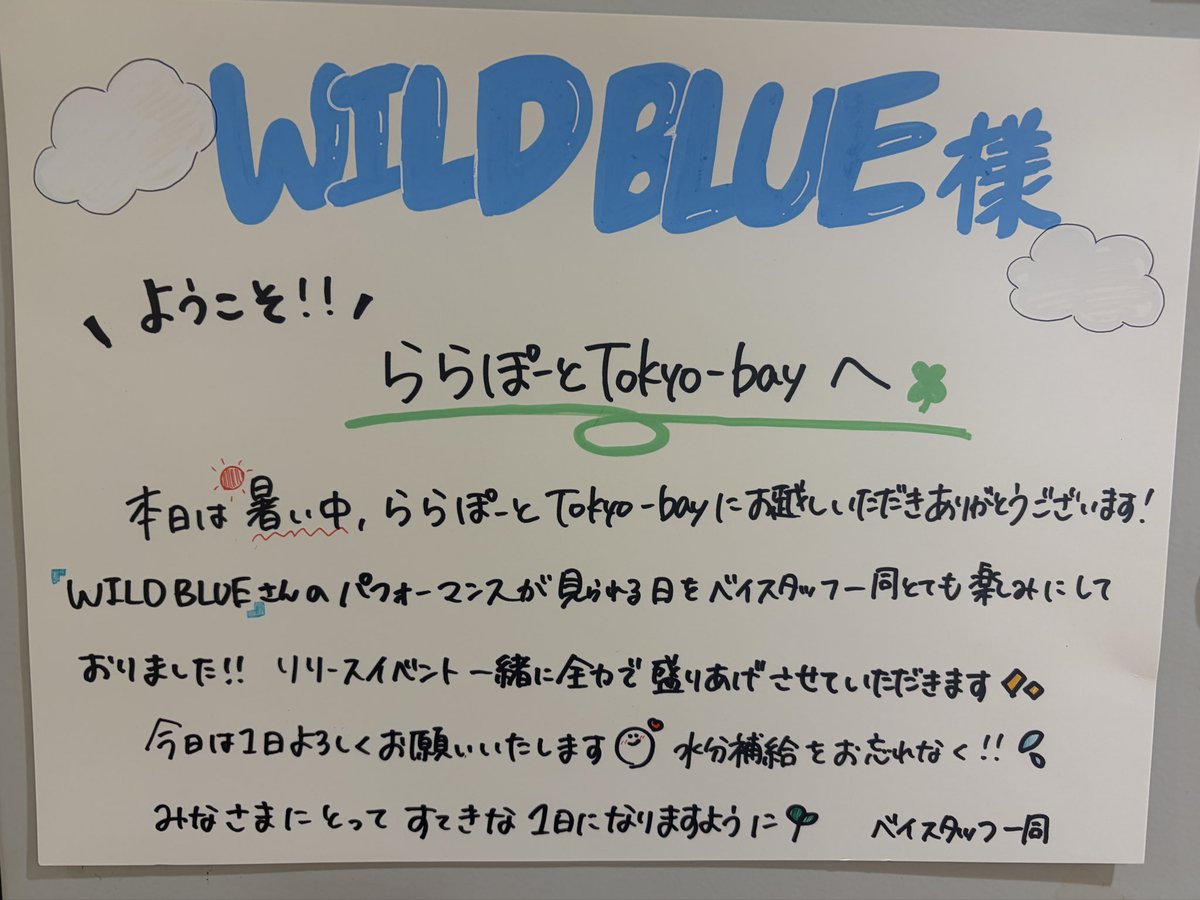 WILD BLUE様
ようこそ!!
ららぽーとTokyo-bayへ
本日は暑い中、ららぽーとTokyo-bayにお越しいただきありがとうございます!
『WILD BLUE』さんのパフォーマンスが見られる日をベイスタッフ一同とても楽しみにして
おりました!! リリースイベント一緒に全力で盛りあげさせていただきます
今日は1日よろしくお願いいたします 水分補給をお忘れなく!!
みなさまにとってすてきな1日になりますように ベイスタッフ一同